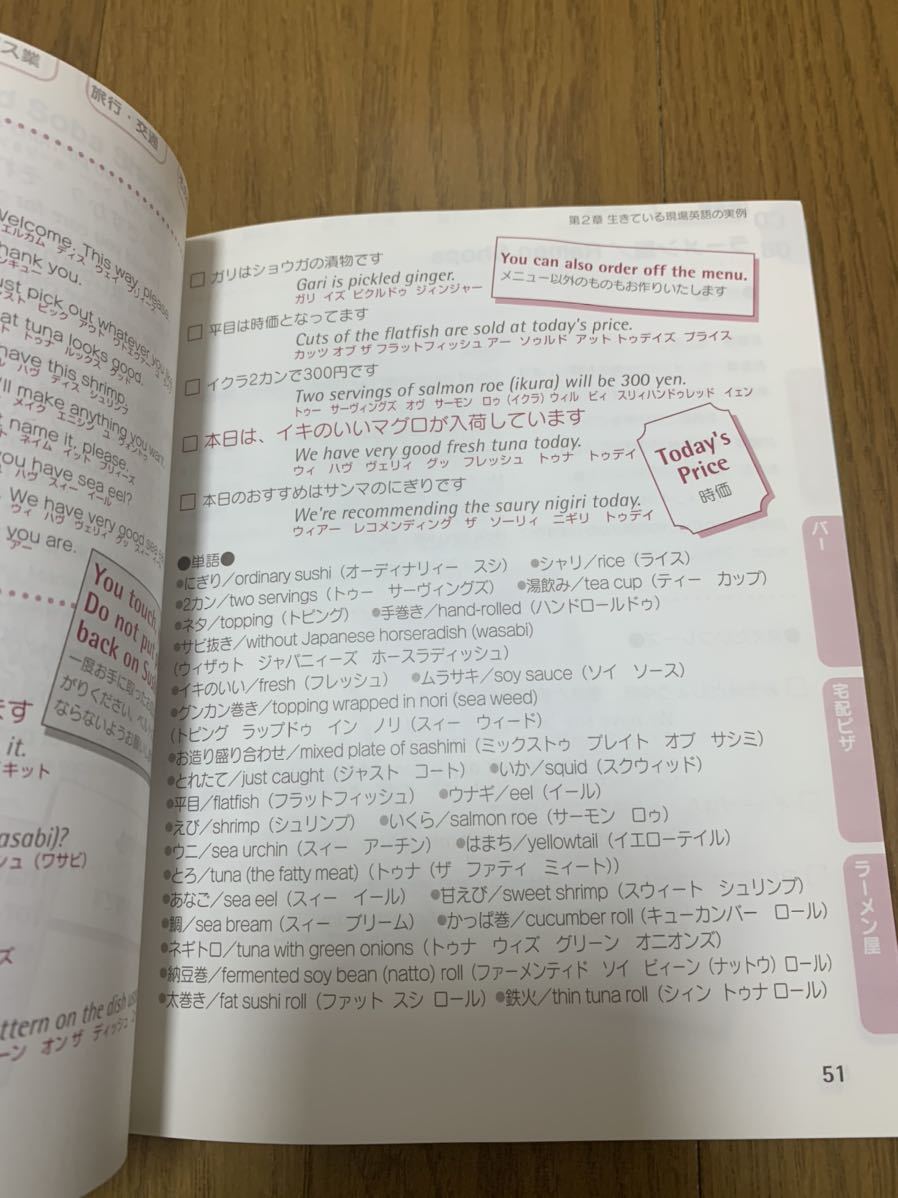 ス業
旅行・交通
Welcome. This way, please.
ェルカム ディス ウェイ プリーズ
hank you.
ンキュー
ust pick out whatever you
ャスト ピック アウト
at tuna looks good.
トゥナ ルックス グッド
have this shrimp.
ハヴ ディス シュリンプ
ll make anything you want.
メイク エニシング ユ ウォント
name it, please.
ネイム イット プリーズ
you have sea eel?
ユ ハヴ スィー イール
We have very good sea
ウィ ハヴ ヴェリィ グッ スィー
you are.
アー
You touch,
Do not put
back on Sus
一度お手に取った
がりください。ベル
ならないようお願い
ます
it.
キット
wasabi)?
シュ（ワサビ）
ズ
attern on the dish
ーン オン ザ ディッシュ
第2章 生きている現場英語の実例
□ ガリはショウガの漬物です
Gari is pickled ginger.
ガリ イズ ピクルドゥ ジィンジャー
You can also order off the menu.
メニュー以外のものもお作りいたします
□ 平目は時価となってます
Cuts of the flatfish are sold at today's price.
カッツ オブ ザ フラットフィッシュ アー ソゥルド アット トゥデイズ プライス
□ イクラ2カンで300円です
Two servings of salmon roe (ikura) will be 300 yen.
トゥー サーヴィングズ オヴ サーモン ロゥ（イクラ）ウィル ビィ スリィハンドゥレッド イェン
□ 本日は、イキのいいマグロが入荷しています
We have very good fresh tuna today.
ウィ ハヴ ヴェリィ グッ フレッシュ トゥナ トゥデイ
Today's
Price
時価
□ 本日のおすすめはサンマのにぎりです
We're recommending the saury nigiri today.
ウィアー レコメンディング ザ ソーリィ ニギリ トゥデイ
●単語●
●にぎり／ordinary sushi（オーディナリィー スシ） ●シャリ／rice（ライス）
●2カン／two servings（トゥー サーヴィングズ） ●湯飲み／tea cup（ティー カップ）
●ネタ／topping（トピング） ●手巻き／hand-rolled（ハンドロールドゥ）
●サビ抜き／without Japanese horseradish (wasabi)
（ウィザゥト ジャパニィーズ ホースラディッシュ）
●イキのいい／fresh（フレッシュ） ●ムラサキ／soy sauce（ソイ ソース）
●グンカン巻き／topping wrapped in nori (sea weed)
（トピング ラップドゥ イン ノリ（スィー ウィード）
●お造り盛り合わせ／mixed plate of sashimi（ミックストゥ プレイト オブ サシミ）
●とれたて／just caught（ジャスト コート） ●いか／squid（スクウィッド）
●平目／flatfish（フラットフィッシュ） ●ウナギ／eel（イール）
●えび／shrimp（シュリンプ） ●いくら／salmon roe（サーモン ロゥ）
●ウニ／sea urchin（スィー アーチン） ●はまち／yellowtail（イエローテイル）
●とろ／tuna (the fatty meat)（トゥナ（ザ ファティ ミィート））
●あなご／sea eel（スィー イール） ●甘えび／sweet shrimp（スウィート シュリンプ）
●鯛／sea bream（スィー ブリーム） ●かっぱ巻／cucumber roll（キューカンバー ロール）
●ネギトロ／tuna with green onions（トゥナ ウィズ グリーン オニオンズ）
●納豆巻／fermented soy bean (natto) roll（ファーメンティド ソイ ビィーン（ナットウ）ロール）
●太巻き／fat sushi roll（ファット スシ ロール） ●鉄火／thin tuna roll（シィン トゥナロール）
バー
宅配ピザ
ラーメン屋
51